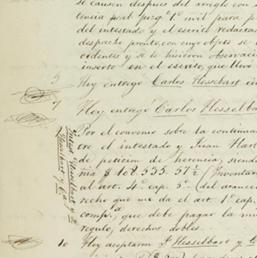 se causen despues del arreglo con s
tencia por el Juzgº 1º civil para p
del intestado y el escrito redacta
despacho pronto, con cuyo objeto se
cedentes y se le hicieron observacion
inserto en el escrito, que llevo
5 Hoy entrego Carlos Hesselbart
7 Hoy entrego Carlos Hesselba
Por el convenio sobre la continua
tre el intestado y Juan Hart
de peticion de herencia, siendo
nia $108.535.57½ (Inventar
al art. 4º cap. 5º del arancel
recho que me da el art. 1º cap.
compª que debe pagar la mi
regulo, derechos dobles.
10 Hoy aceptaron J. Hesselbart y C
Hesselbart y Cª